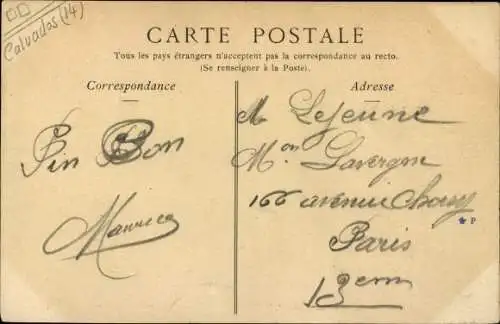 Calvados (14)
CARTE POSTALE
Tous les pays étrangers n'acceptent pas la correspondance au recto.
(Se renseigner à la Poste).
Correspondance
Pin Bon
Maurice
Adresse
M Lejeune
Mon Lavergne
166 avenue Choisy
Paris
13em
P